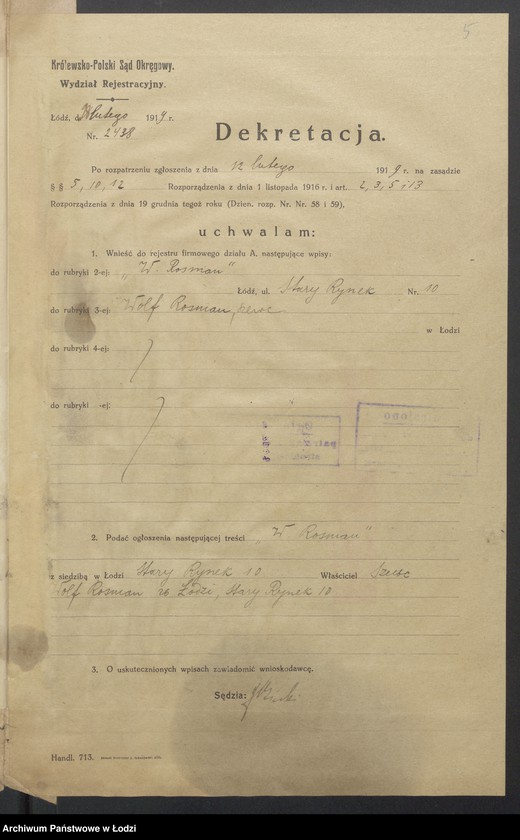 5
Królewsko-Polski Sąd Okręgowy.
Wydział Rejestracyjny.
Łódź, d. lutego 1919 r.
Nr. 2438
Dekretacja.
Po rozpatrzeniu zgłoszenia z dnia 12 lutego 1919 r. na zasadzie
§ § 5, 10, 12 Rozporządzenia z dnia 1 listopada 1916 r. i art. 2, 3, 5 i 13
Rozporządzenia z dnia 19 grudnia tegoż roku (Dzien. rozp. Nr. Nr. 58 i 59),
uchwalam:
1. Wnieść do rejestru firmowego działu A, następujące wpisy:
do rubryki 2-ej: „W. Rosman"
Łódź, ul. Stary Rynek Nr. 10
do rubryki 3-ej: Wolf Rosman,
w Łodzi
do rubryki 4-ej:
do rubryki -ej:
2. Podać ogłoszenia następującej treści „W. Rosman"
z siedzibą w Łodzi Stary Rynek 10 Właściciel
Wolf Rosman w Łodzi, Stary Rynek 10
3. O uskutecznionych wpisach zawiadomić wnioskodawcę.
Sędzia:
Handl. 713.
Archiwum Państwowe w Łodzi